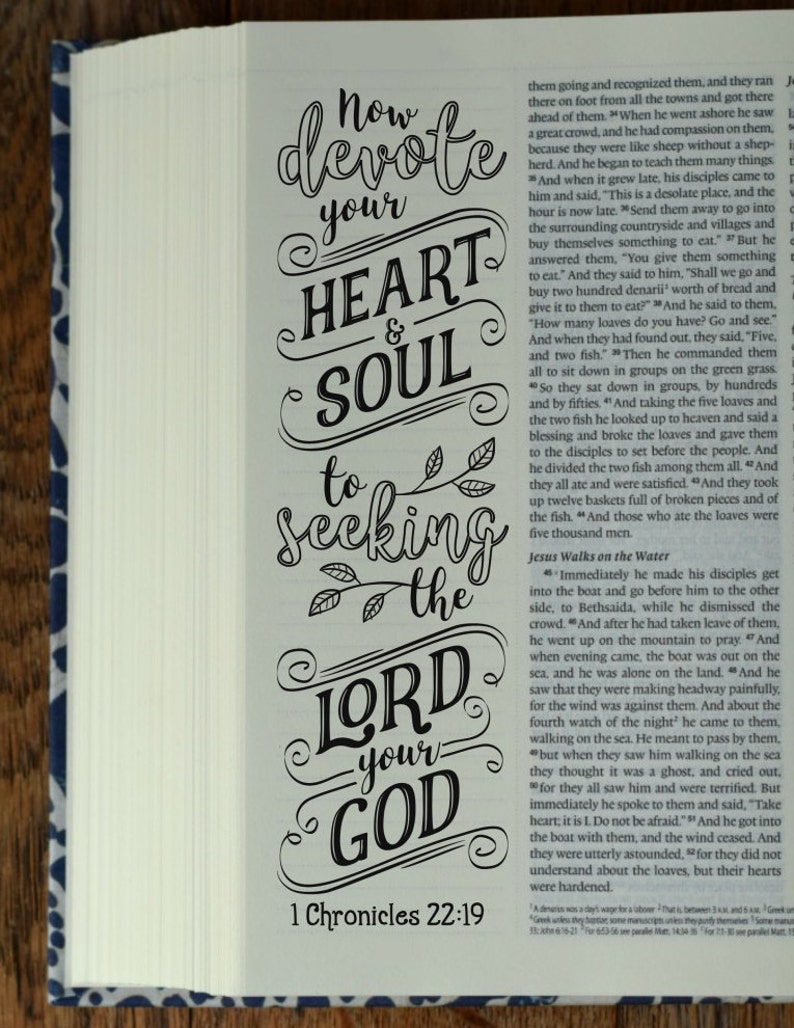 Now
devote
your
HEART
&
SOUL
to
seeking
the
LORD
your
GOD
1 Chronicles 22:19
them going and recognized them, and they ran
there on foot from all the towns and got there
ahead of them. 34 When he went ashore he saw
a great crowd, and he had compassion on them,
because they were like sheep without a shep-
herd. And he began to teach them many things.
35 And when it grew late, his disciples came to
him and said, "This is a desolate place, and the
hour is now late. 36 Send them away to go into
the surrounding countryside and villages and
buy themselves something to eat." 37 But he
answered them, "You give them something
to eat." And they said to him, "Shall we go and
buy two hundred denarii¹ worth of bread and
give it to them to eat?" 38 And he said to them,
"How many loaves do you have? Go and see."
And when they had found out, they said, "Five,
and two fish." 39 Then he commanded them
all to sit down in groups on the green grass.
40 So they sat down in groups, by hundreds
and by fifties. 41 And taking the five loaves and
the two fish he looked up to heaven and said a
blessing and broke the loaves and gave them
to the disciples to set before the people. And
he divided the two fish among them all. 42 And
they all ate and were satisfied. 43 And they took
up twelve baskets full of broken pieces and of
the fish. 44 And those who ate the loaves were
five thousand men.
Jesus Walks on the Water
45 Immediately he made his disciples get
into the boat and go before him to the other
side, to Bethsaida, while he dismissed the
crowd. 46 And after he had taken leave of them,
he went up on the mountain to pray. 47 And
when evening came, the boat was out on the
sea, and he was alone on the land. 48 And he
saw that they were making headway painfully,
for the wind was against them. And about the
fourth watch of the night² he came to them,
walking on the sea. He meant to pass by them,
49 but when they saw him walking on the sea
they thought it was a ghost, and cried out,
50 for they all saw him and were terrified. But
immediately he spoke to them and said, "Take
heart; it is I. Do not be afraid." 51 And he got into
the boat with them, and the wind ceased. And
they were utterly astounded, 52 for they did not
understand about the loaves, but their hearts
were hardened.
¹ A denarius was a day's wage for a laborer ² That is, between 3 A.M. and 6 A.M. ³ Greek
⁴ Greek unless they baptize; some manuscripts unless they purify themselves ⁵ Some
John 6:16-21 For 6:53-56 see parallel Matt. 14:34-36 For 7:1-30 see parallel Matt.